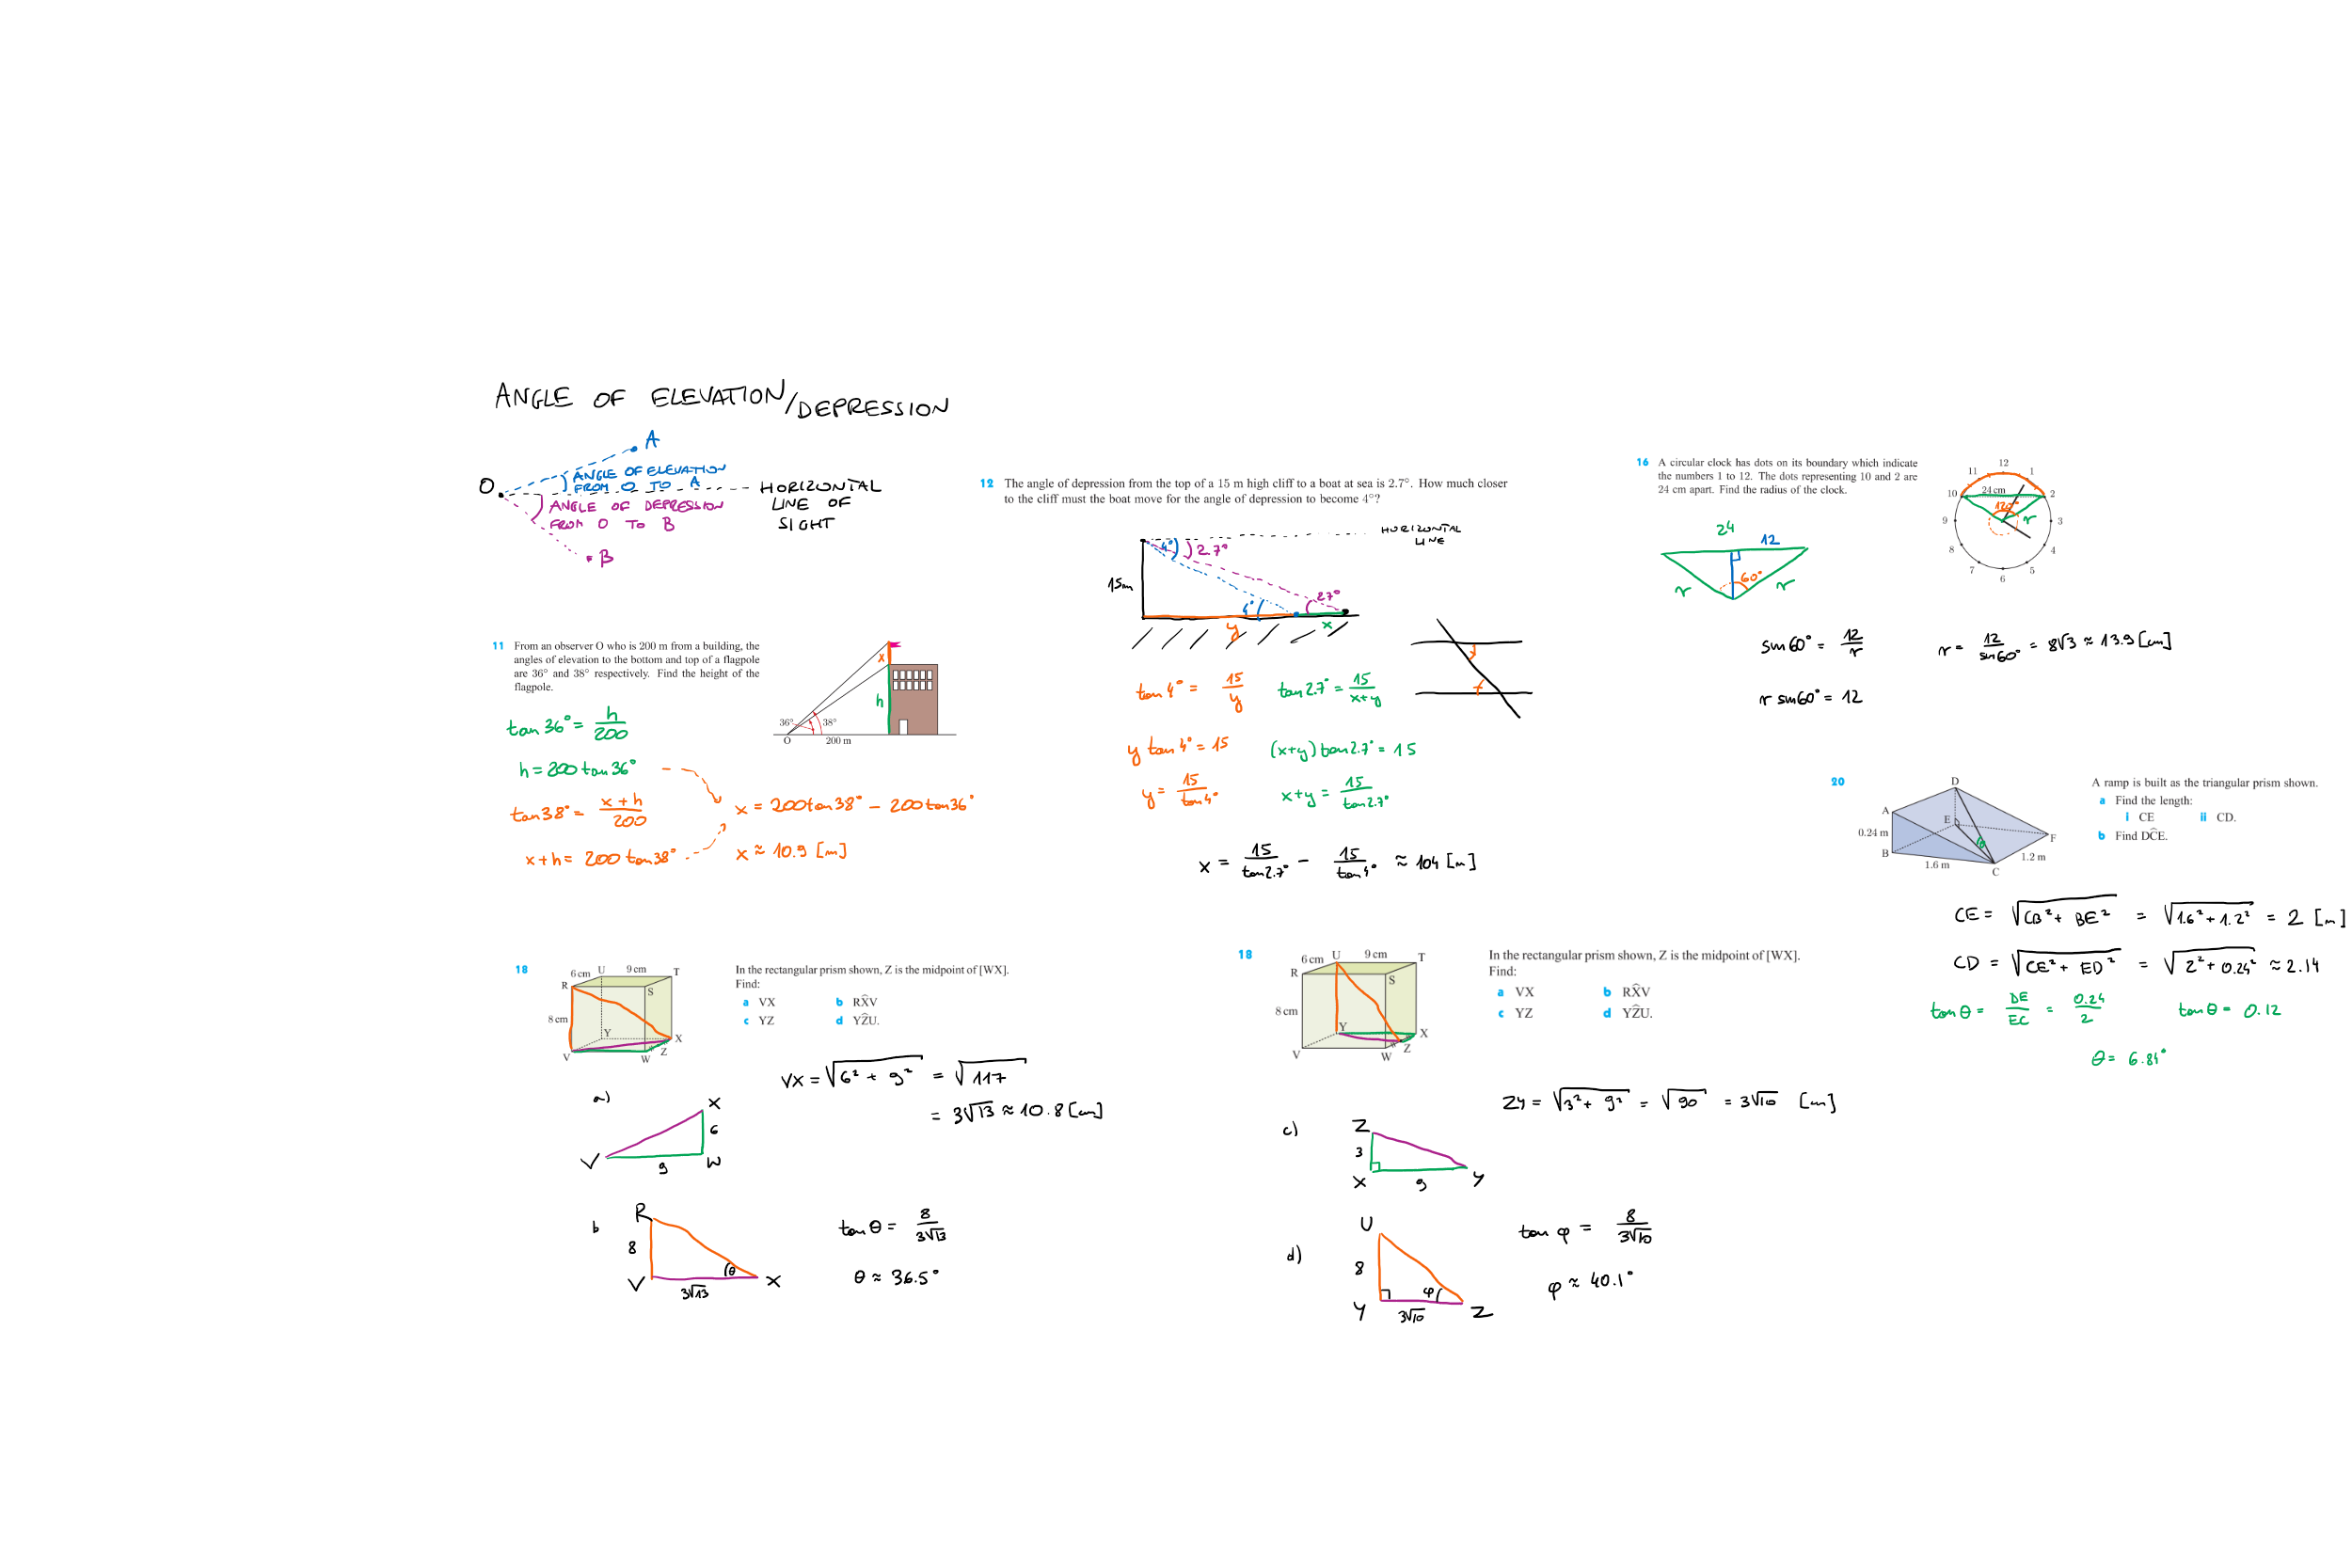 ANGLE OF ELEVATION/DEPRESSION
A
O
ANGLE OF ELEVATION
FROM O TO A
HORIZONTAL
LINE OF
SIGHT
ANGLE OF DEPRESSION
FROM O TO B
B
11 From an observer O who is 200 m from a building, the
angles of elevation to the bottom and top of a flagpole
are 36° and 38° respectively. Find the height of the
flagpole.
x
h
36°
38°
O
200 m
tan 36° = h/200
h = 200 tan 36°
tan 38° = x+h/200
x+h = 200 tan 38°
x = 200 tan 38° - 200 tan 36°
x ≈ 10.9 [m]
12 The angle of depression from the top of a 15 m high cliff to a boat at sea is 2.7°. How much closer
to the cliff must the boat move for the angle of depression to become 4°?
HORIZONTAL
LINE
4°
2.7°
15m
4°
2.7°
y
x
tan 4° = 15/y
tan 2.7° = 15/x+y
y tan 4° = 15
(x+y) tan 2.7° = 15
y = 15/tan 4°
x+y = 15/tan 2.7°
x = 15/tan 2.7° - 15/tan 4° ≈ 104 [m]
16 A circular clock has dots on its boundary which indicate
the numbers 1 to 12. The dots representing 10 and 2 are
24 cm apart. Find the radius of the clock.
12
11
1
10
24 cm
2
120°
r
9
3
8
4
7
5
6
24
12
60°
r
r
sin 60° = 12/r
r = 12/sin 60° = 8√3 ≈ 13.9 [cm]
r sin 60° = 12
20 A ramp is built as the triangular prism shown.
a Find the length:
i CE ii CD.
b Find DĈE.
D
A
E
F
0.24 m
B
θ
1.6 m
1.2 m
C
CE = √CB² + BE² = √1.6² + 1.2² = 2 [m]
CD = √CE² + ED² = √2² + 0.24² ≈ 2.14
tan θ = DE/EC = 0.24/2
tan θ = 0.12
θ = 6.84°
18 In the rectangular prism shown, Z is the midpoint of [WX].
Find:
a VX b RX̂V
c YZ d YẐU.
6 cm U 9 cm T
R
S
8 cm
Y
X
V
W
Z
a)
VX = √6² + 9² = √117
= 3√13 ≈ 10.8 [cm]
X
6
V
9
W
b
R
8
V
θ
X
3√13
tan θ = 8/3√13
θ ≈ 36.5°
18 In the rectangular prism shown, Z is the midpoint of [WX].
Find:
a VX b RX̂V
c YZ d YẐU.
6 cm U 9 cm T
R
S
8 cm
Y
X
V
W
Z
ZY = √3² + 9² = √90 = 3√10 [cm]
c)
Z
3
X
9
Y
d)
U
8
φ
Y
3√10
Z
tan φ = 8/3√10
φ ≈ 40.1°